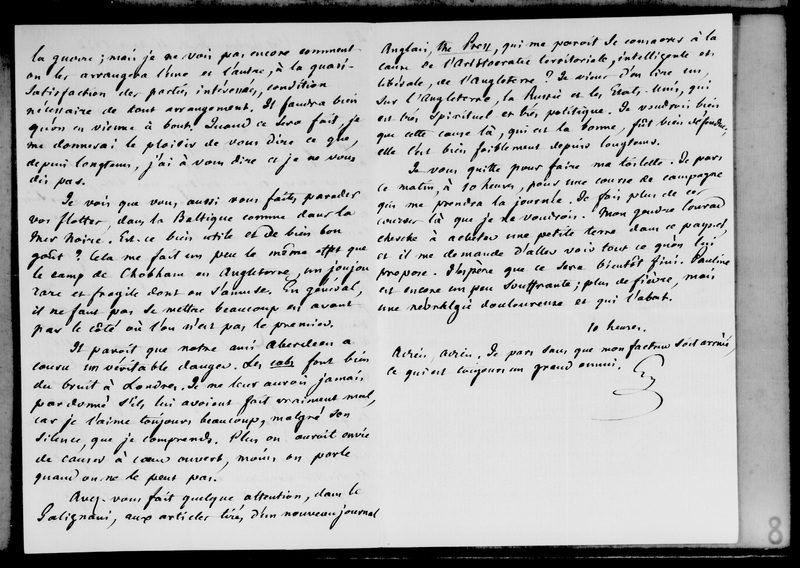 la guerre ; mais je ne vois pas encore comment
on les arrangera l'une et l'autre, à la quasi-
satisfaction des parties intéressées, condition
nécessaire de tout arrangement. Il faudra bien
qu'on en vienne à bout. Quand ce sera fait, je
me donnerai le plaisir de vous dire ce que,
depuis longtems, j'ai à vous dire et je ne vous
dis pas.
Je vois que vous aussi vous faites parader
vos flottes, dans la Baltique comme dans la
Mer Noire. Est-ce bien utile et de bien bon
goût ? Cela me fait un peu le même effet que
le camp de Chobham en Angleterre, un joujou
rare et fragile dont on s'amuse. En général,
il ne faut pas se mettre beaucoup en avant
par le côté où l'on n'est pas le premier.
Il paroît que notre ami Aberdeen a
couru un véritable danger. Les cabs font bien
du bruit à Londres. Je ne leur aurois jamais
pardonné s'ils lui avoient fait vraiment mal,
car je l'aime toujours beaucoup, malgré son
silence, que je comprends. Plus on auroit envie
de causer à cœur ouvert, moins on parle
quand on ne le peut pas.
Avez-vous fait quelque attention, dans le
Galignani, aux articles tirés d'un nouveau journal
Anglais, the Press, qui me paroît se consacrer à la
cause de l'Aristocratie territoriale, intelligente et
libérale, de l'Angleterre ? Je viens d'en lire un,
sur l'Angleterre, la Russie et les Etats-Unis, qui
est très spirituel et très politique. Je voudrois bien
que cette cause là, qui est la bonne, fût bien défendue ;
elle l'est bien faiblement depuis longtems.
Je vous quitte pour faire ma toilette. Je pars
ce matin, à 10 heures, pour une course de campagne
qui me prendra la journée. Je fais plus de ces
courses là que je ne voudrois. Mon gendre Conrad
cherche à acheter une petite terre dans ce pays-ci,
et il me demande d'aller voir tout ce qu'on lui
propose. J'espère que ce sera bientôt fini. Pauline
est encore un peu souffrante ; plus de fièvre, mais
une névralgie douloureuse et qui l'abat.
10 heures.
Adieu, adieu. Je pars sans que mon facteur soit arrivé,
ce qui est toujours un grand ennui.
8